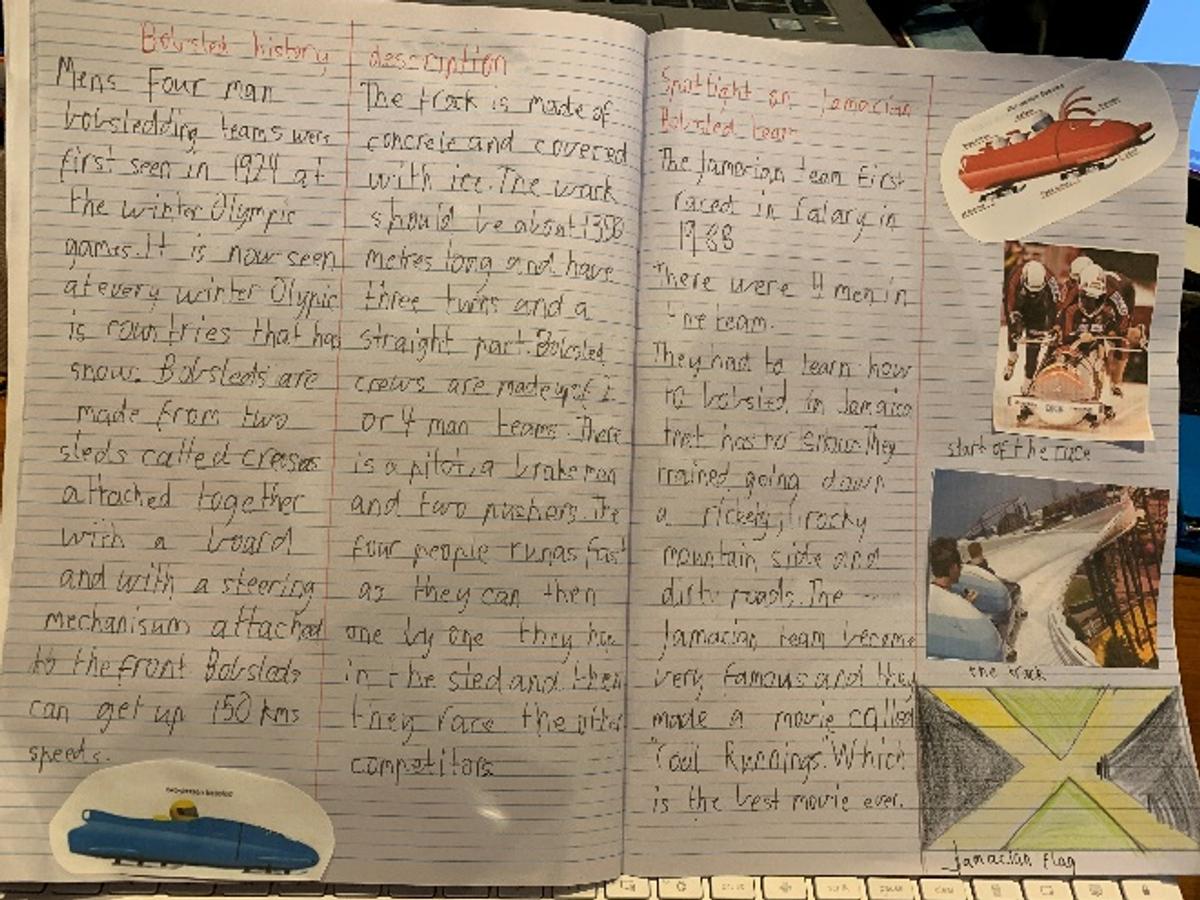 Bobsled history
Mens four man
bobsledding teams were
first seen in 1924 at
the winter Olympic
games. It is now seen
at every winter Olypic
is countries that has
snow. Bobsleds are
made from two
sleds called creases
attached together
with a board
and with a steering
mechanisum attached
to the front Bobsleds
can get up 150 kms
speeds.
two-person bobsled
description
The track is made of
concrete and covered
with ice. The
should be about
metres long and have
three turns and a
straight part. Bobsled
crews are made up of 2
or 4 man teams. There
is a pilot, a brakeman
and two pushers. The
four people run as fast
as they can then
one by one they
in the sled and then
they race the other
competitors
Spotlight on Jamacian
Bobsled team
The Jamacian team first
raced in in
1988
There were 4 men in
the team.
They had to learn how
to bobsled in Jamaica
that has no snow. They
trained going down
a rickety, rocky
mountain side and
dirty roads. The
Jamacian team become
very famous and they
made a movie called
"Cool Runnings". Which
is the best movie ever.
start of the race
the track
Jamacian flag